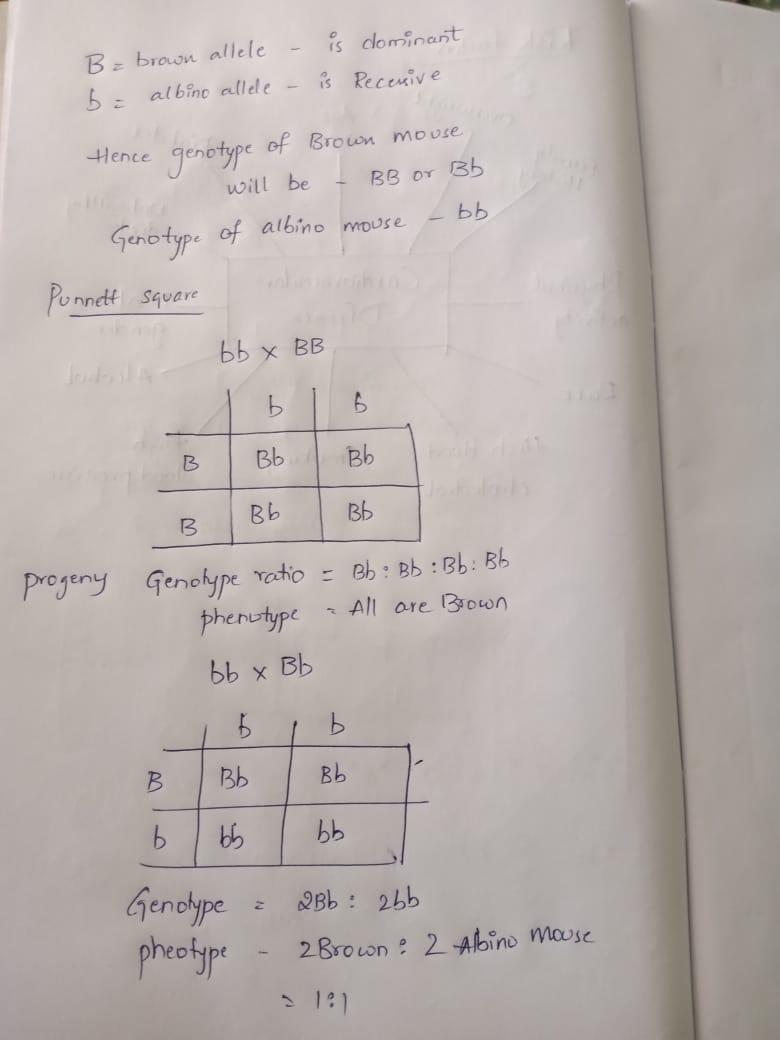 B = brown allele - is dominant
b = albino allele - is Recessive
Hence genotype of Brown mouse
will be - BB or Bb
Genotype of albino mouse - bb
Punnett square
bb x BB
b b
B Bb Bb
B Bb Bb
progeny Genotype ratio = Bb : Bb : Bb : Bb
phenotype = All are Brown
bb x Bb
b b
B Bb Bb
b bb bb
Genotype = 2Bb : 2bb
pheotype - 2 Brown : 2 Albino mouse
= 1:1